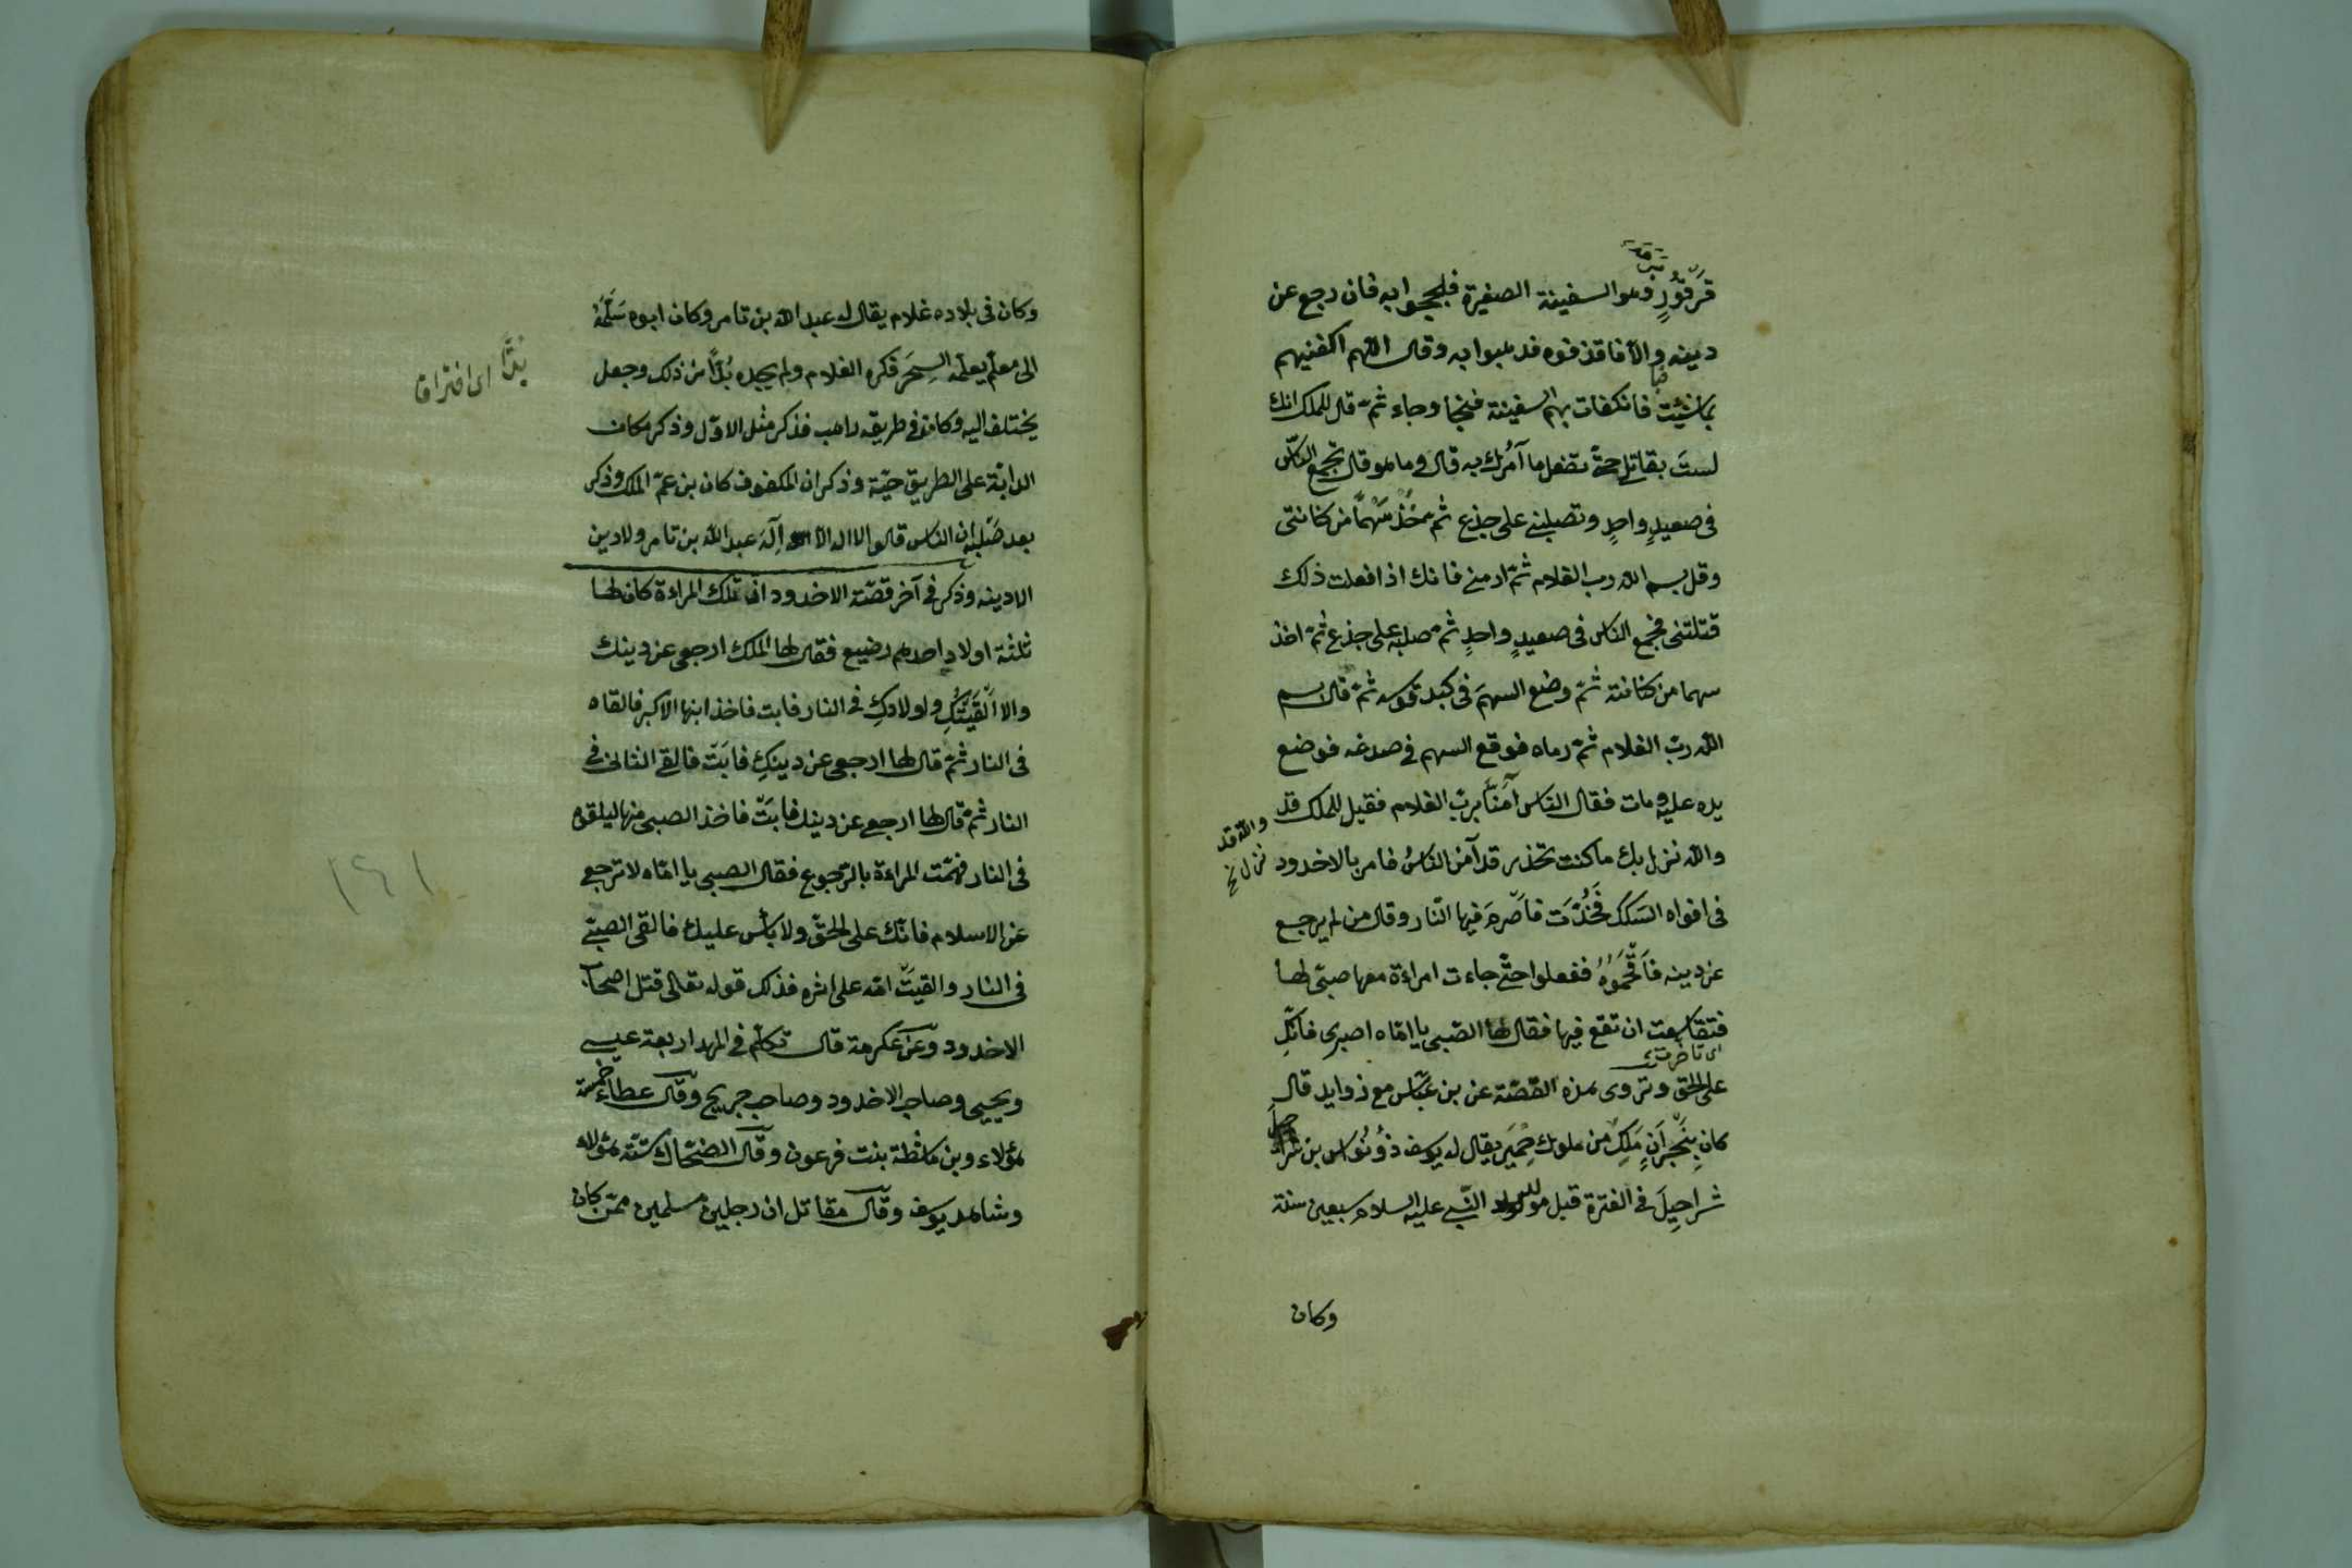 قُرْقُورٍ وهو السفينة الصغيرة فلججوا به فان رجع عن
دينه والا فاقذفوه فذهبوا به وقال اللهم اكفنيهم
بما شئت فانكفات بهم السفينة فنجا وجاء ثمّ قال للملك انك
لستَ بقاتلي حتى تفعل ما آمرك به قال وما هو قال تجمع الناس
فى صعيدٍ واحدٍ وتصلبني على جذع ثم خُذْ سَهْماً من كنانتى
وقل بسم الله رب الغلام ثمّ ارمني فانك اذا فعلت ذلك
قتلتنى فجمع الناس فى صعيدٍ واحدٍ ثم صلبه على جذع ثمّ اخذ
سهما من كنانته ثمّ وضع السهمَ فى كبد قوسه ثمّ قال بسم
الله ربّ الغلام ثمّ رماه فوقع السهم في صدغه فوضع
يده عليه ومات فقال الناس آمَنَّا بربّ الغلام فقيل للملك قد
والله نزل بك ما كنت تحذر قد آمن الناسُ فامر بالاخدود
والله قد
نزل خ
فى افواه السكك فَخُدَّت فاَضرمَ فيها النّار وقال من لم يرجع
عن دينه فاَقْحِمُوُهُ ففعلوا حتّى جاءت امراءة معها صبىّ لها
فتقاعست ان تقع فيها فقال لها الصّبى يا امّاه اصبرى فانّكِ
اى تاخرت
على الحق وتروى هذه القصّة عن بن عبّاس مع زوايد قال
كان بِنَجْرَانِ مَلِكٌ من ملوك حِمْيَر يقال له يوسف ذوُ نُوَاس بن
شراحِيلَ في الفترة قبل مولد النّبي عليه السلام سبعين سنة
وكان
وكان فى بلاده غلام يقال له عبد الله بن تامر وكان ابوه سَلَّمَهُ
الى معلّم يعلّمه السِحَر فكره الغلام ولم يجد بُدّاً من ذلك وجعل
بُدًّا اى افتراقا
يختلف اليه وكان فى طريقه راهب فذكر مثل الاوّل وذكر مكان
الدابّة على الطريق حيّة وذكر ان المكفوف كان بن عمّ الملك وذكر
بعد صَلْبِه ان الناس قالوا لا اله الا اِلَهَ عبد الله بن تامر ولا دين
الا دينه وذكر فى آخر قصّته الاخدود انّ تلك المراءة كان لها
ثلثة اولادٍ احدهم رضيع فقال لها الملك ارجعى عن دينك
والا اَلْقَيْتُكِ واولادكِ فى النار فابت فاخذ ابنها الاكبر فالقاه
فى النار ثمّ قال لها ارجعى عن دينكِ فابَت فالقى الثانى فى
النار ثمّ قال لها ارجعى عن دينك فابَتْ فاخذ الصبى منها ليلقوه
فى النار فهمّت المراءة بالرجوع فقال الصبى يا امّاه لا ترجعى
عن الاسلام فانّك على الحقّ ولا باس عليك فالقى الصبىّ
فى النار والقيَتْ امّه على اثره فذلك قوله تعالى قتل اصحاب
١٤١
الاخدود وعن عكرمة قال تكلّم فى المهد اربعة عيسى
ويحيى وصاحب الاخدود وصاحب جريج وقال عطاء خمسة
هؤلاء وبن ماشطة بنت فرعون وقال الضحّاك ستّة هؤلاء
وشاهد يوسف وقال مقاتل ان رجلين مسلمين ممّن كان